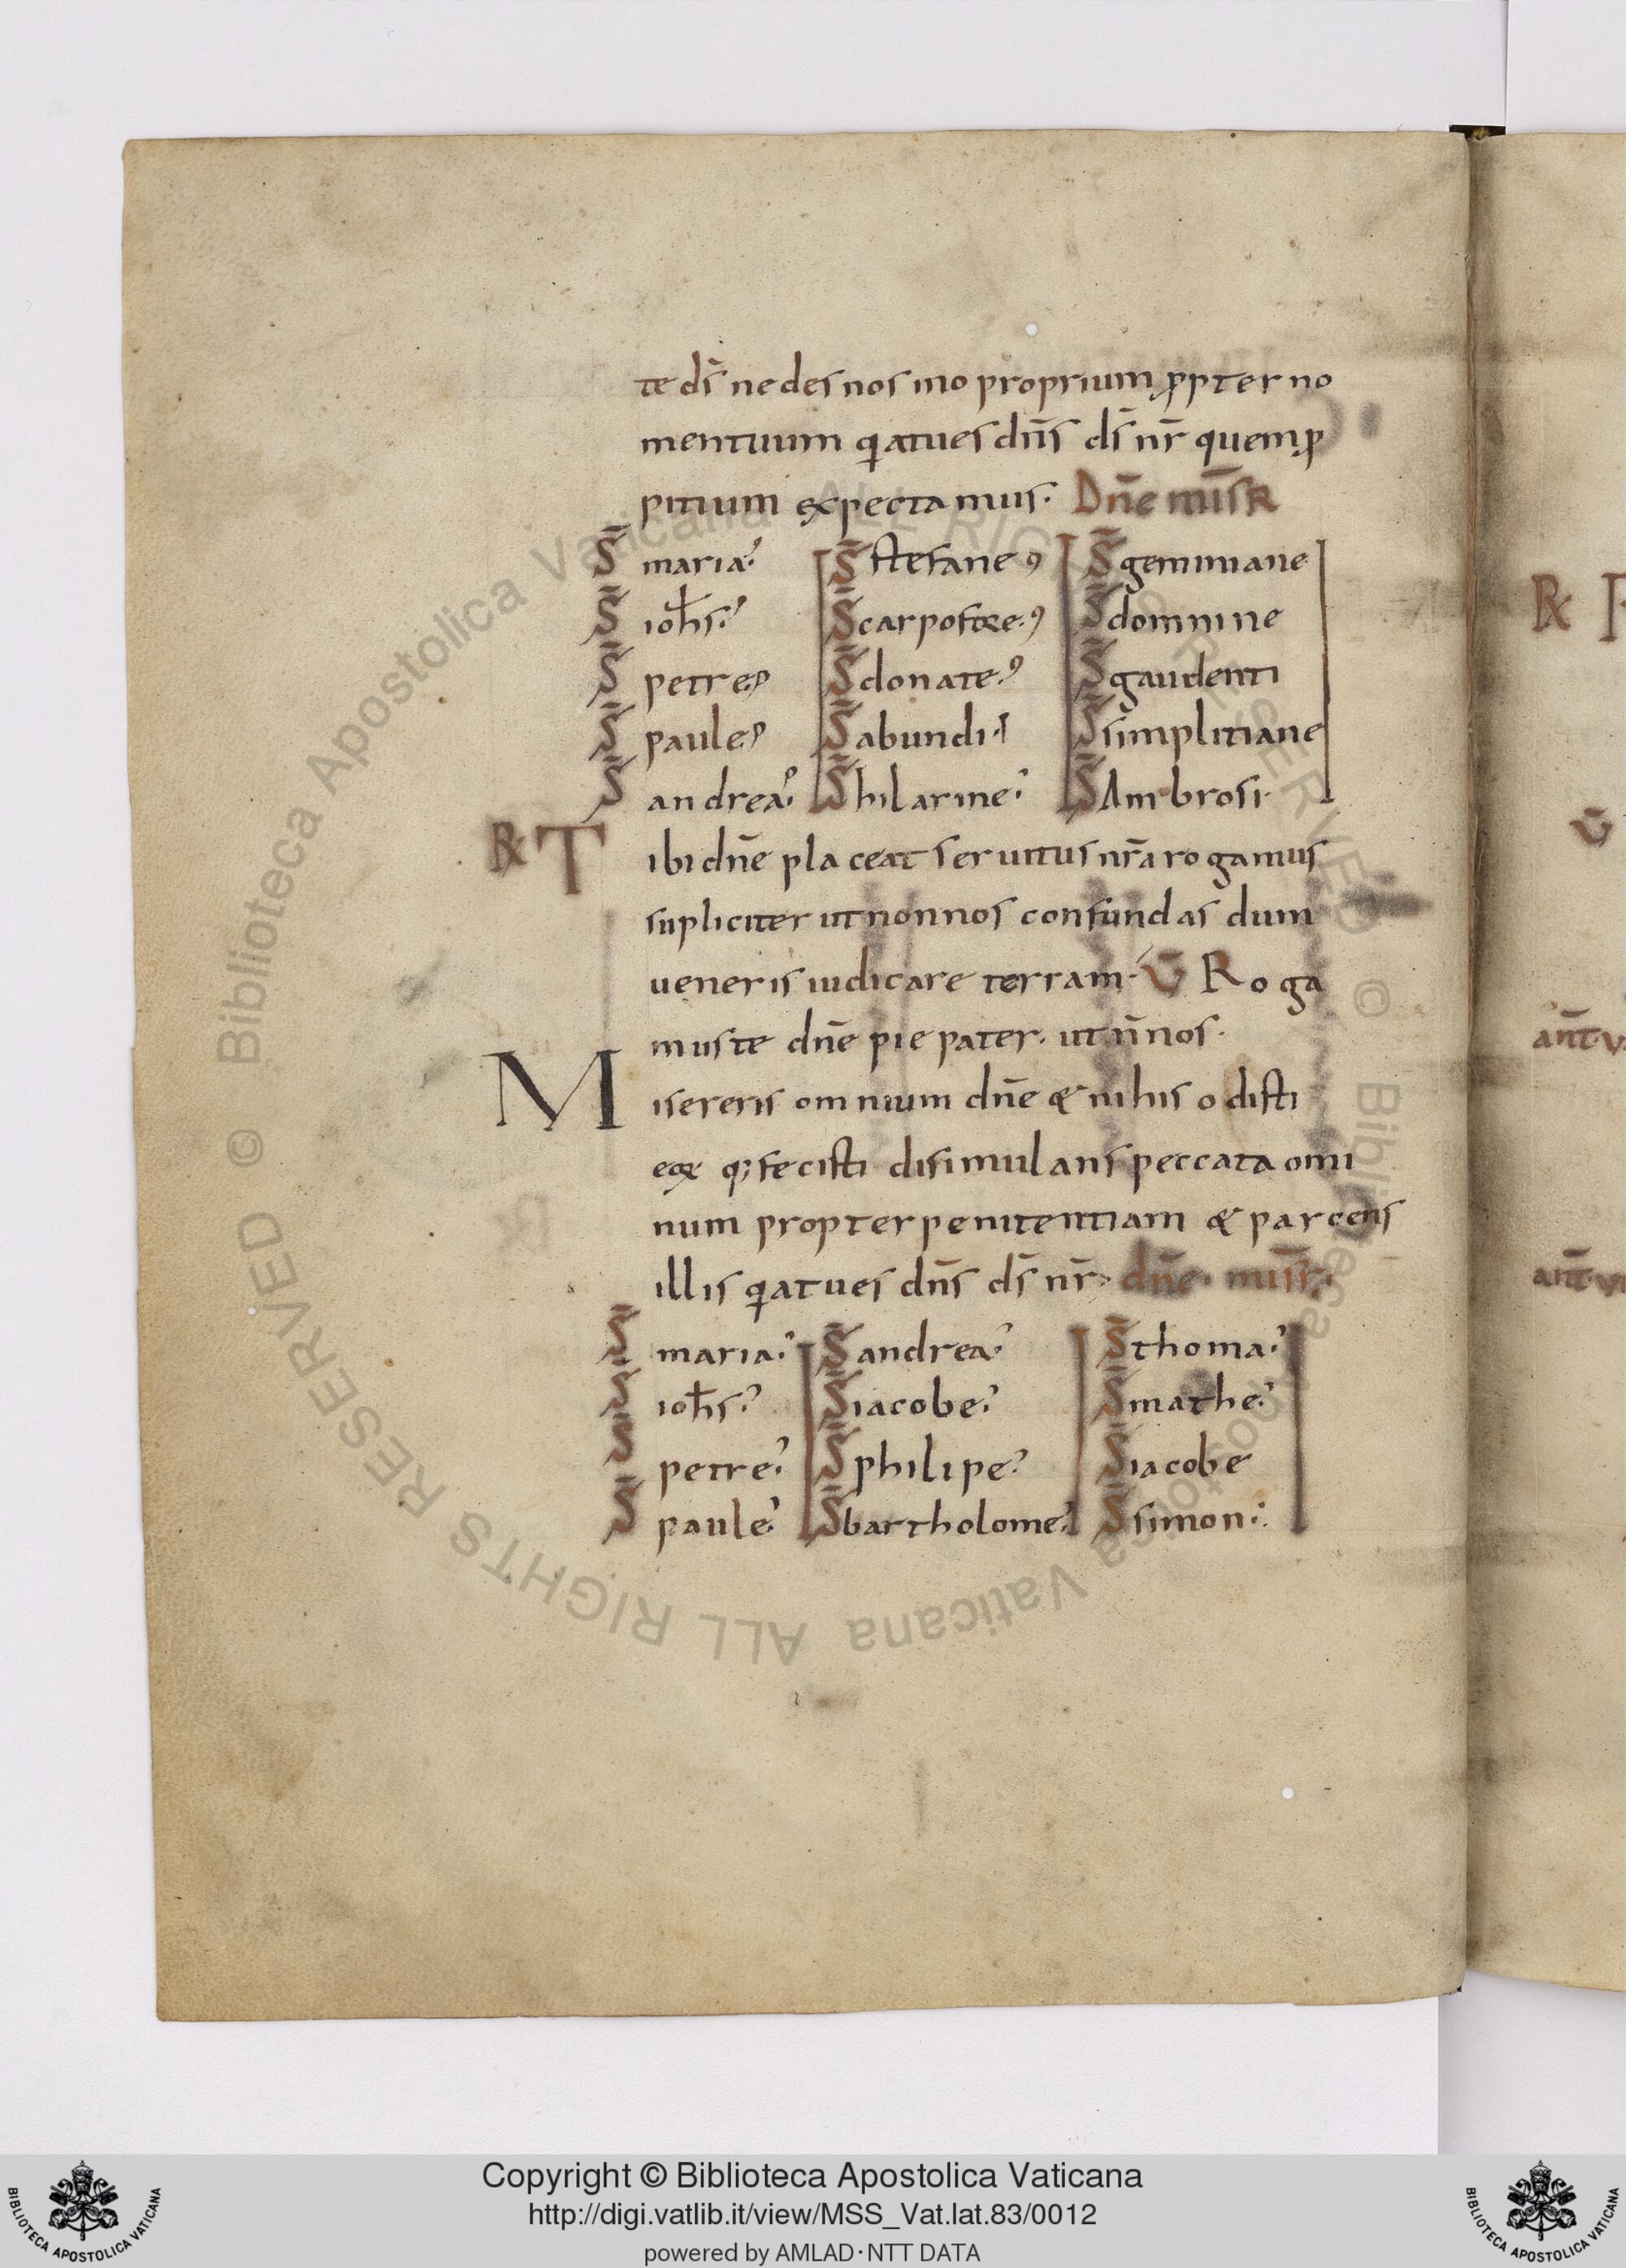 te dς̄ ne des nos ino proprium ꝓpter no
mentuum qiatues dn̄s ds̄ nr̄ quem ꝓ
pitium expectamus. Dn̄e mis̄R
S̄ maria. S̄ stefane S̄ geminiane
S̄ ioh̄s. S̄ carpofore. S̄ domnine
S̄ petre S̄ donate. S̄ gaudenti
S̄ paule S̄ abundi. S̄ simplitiane
S̄ andrea. S̄ hilarine. S̄ Ambrosi.
R̷ Tibi dn̄e placeat seruitus nr̄a rogamus
supliciter ut non nos confundas dum
ueneris iudicare terram. V̄ Roga
mus te dn̄e pie pater. ut n̄ nos.
Misereris omnium dn̄e & nihis odisti
eoꝝ q; fecisti disimulans peccata omi
num propter penitentiam & parcens
illis qiatues dn̄s ds̄ nr̄. dn̄e. mis̄r.
S̄ maria. S̄ andrea. S̄ thoma.
S̄ ioh̄s. S̄ iacobe. S̄ mathe.
S̄ petre. S̄ philipe. S̄ iacobe
S̄ paule. S̄ bartholome. S̄ simon.
R̷
V̄
ant̄. v
ant̄. v
© Biblioteca Apostolica Vaticana ALL RIGHTS RESERVED © Biblioteca Apostolica Vaticana ALL RIGHTS RESERVED
Copyright © Biblioteca Apostolica Vaticana
http://digi.vatlib.it/view/MSS_Vat.lat.83/0012
powered by AMLAD·NTT DATA
BIBLIOTECA APOSTOLICA VATICANA
BIBLIOTECA APOSTOLICA VATICANA